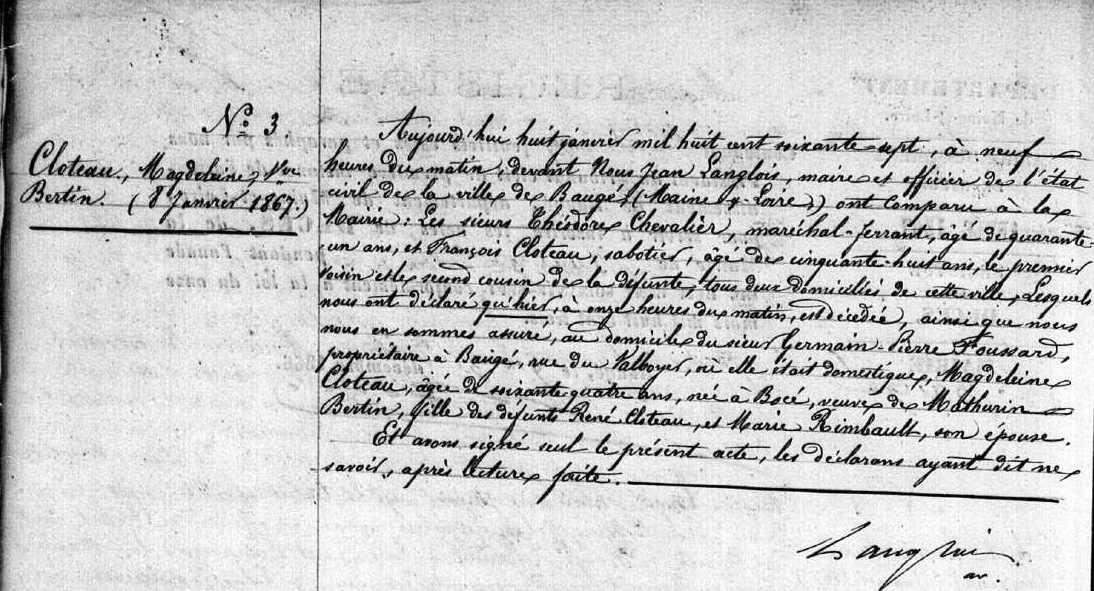 N° 3
Cloteau, Magdeleine, Vve
Bertin. (8 Janvier 1867.)
Aujourd'hui huit janvier mil huit cent soixante-sept, à neuf
heures du matin, devant Nous Jean Langlois, maire et officier de l'état
civil de la ville de Baugé, (Maine & Loire,) ont comparu à la
Mairie: Les sieurs Théodore Chevalier, maréchal-ferrant, âgé de quarante-
un ans, et François Cloteau, sabotier, âgé de cinquante-huit ans, le premier
voisin et le second cousin de la défunte, tous deux domiciliés de cette ville, Lesquels
nous ont déclaré qu'hier, à onze heures du matin, est décédée, ainsi que nous
nous en sommes assuré, au domicile du sieur Germain-Pierre Foussard,
propriétaire à Baugé, rue du Valboyer, où elle était domestique, Magdeleine
Cloteau, âgée de soixante quatre ans, née à Bocé, veuve de Mathurin
Bertin, fille des défunts René Cloteau, et Marie Rimbault, son épouse.
Et avons signé seul le présent acte, les déclarans ayant dit ne
savoir, après lecture faite.
Langlois